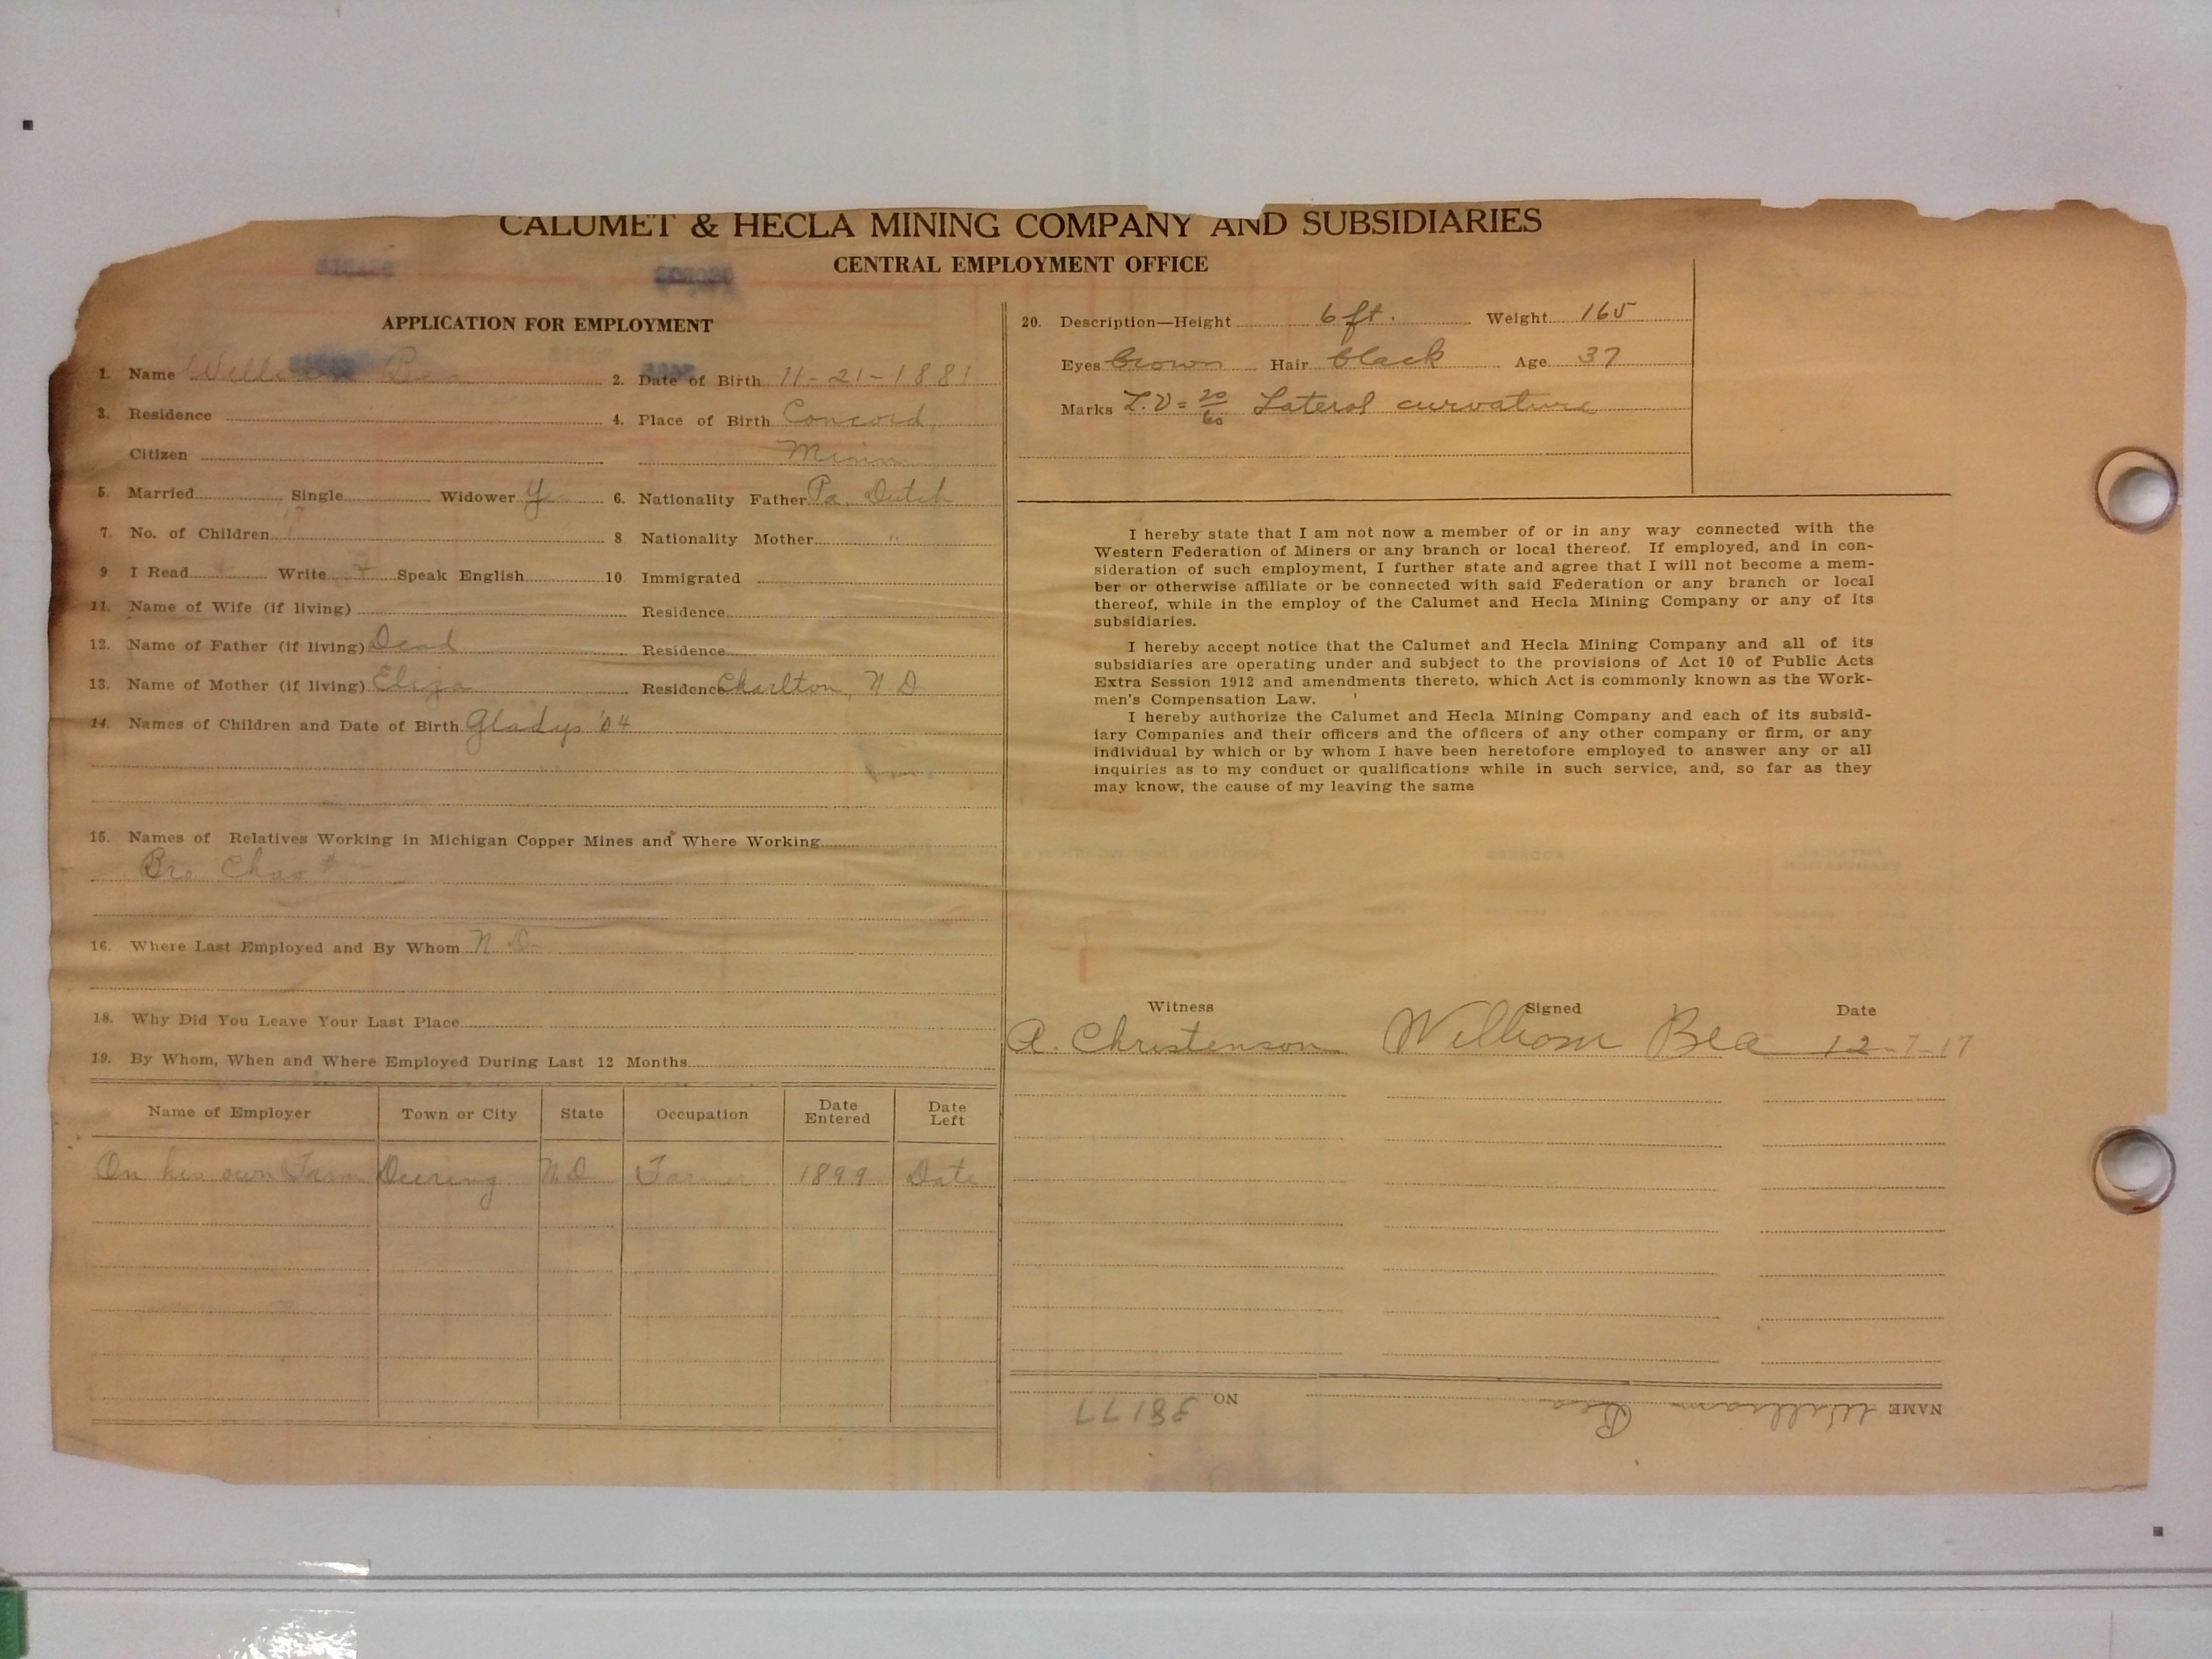 CALUMET & HECLA MINING COMPANY AND SUBSIDIARIES
CENTRAL EMPLOYMENT OFFICE
APPLICATION FOR EMPLOYMENT
1. Name William Bea 2. Date of Birth 11-21-1881
3. Residence 4. Place of Birth Concord,
Citizen Minn
5. Married Single Widower Yes 6. Nationality Father Pa. Dutch
7. No. of Children 1 8 Nationality Mother "
9 I Read Write Speak English 10 Immigrated
11. Name of Wife (if living) Residence
12. Name of Father (if living) Dead Residence
13. Name of Mother (if living) Eliza Residence Charlton, N.D.
14. Names of Children and Date of Birth Gladys '04
15. Names of Relatives Working in Michigan Copper Mines and Where Working
Bro Chas
16. Where Last Employed and By Whom N.D.
18. Why Did You Leave Your Last Place
19. By Whom, When and Where Employed During Last 12 Months
Name of Employer Town or City State Occupation Date Entered Date Left
On his own Farm Deering N.D. Farmer 1899 Date
20. Description—Height 6 ft. Weight 165
Eyes brown Hair black Age 37
Marks L.V = 20/60 Lateral curvature
I hereby state that I am not now a member of or in any way connected with the
Western Federation of Miners or any branch or local thereof. If employed, and in con-
sideration of such employment, I further state and agree that I will not become a mem-
ber or otherwise affiliate or be connected with said Federation or any branch or local
thereof, while in the employ of the Calumet and Hecla Mining Company or any of its
subsidiaries.
I hereby accept notice that the Calumet and Hecla Mining Company and all of its
subsidiaries are operating under and subject to the provisions of Act 10 of Public Acts
Extra Session 1912 and amendments thereto, which Act is commonly known as the Work-
men's Compensation Law.
I hereby authorize the Calumet and Hecla Mining Company and each of its subsid-
iary Companies and their officers and the officers of any other company or firm, or any
individual by which or by whom I have been heretofore employed to answer any or all
inquiries as to my conduct or qualifications while in such service, and, so far as they
may know, the cause of my leaving the same
Witness Signed Date
A. Christenson William Bea 12-7-17
NAME William Bea NO. 38177